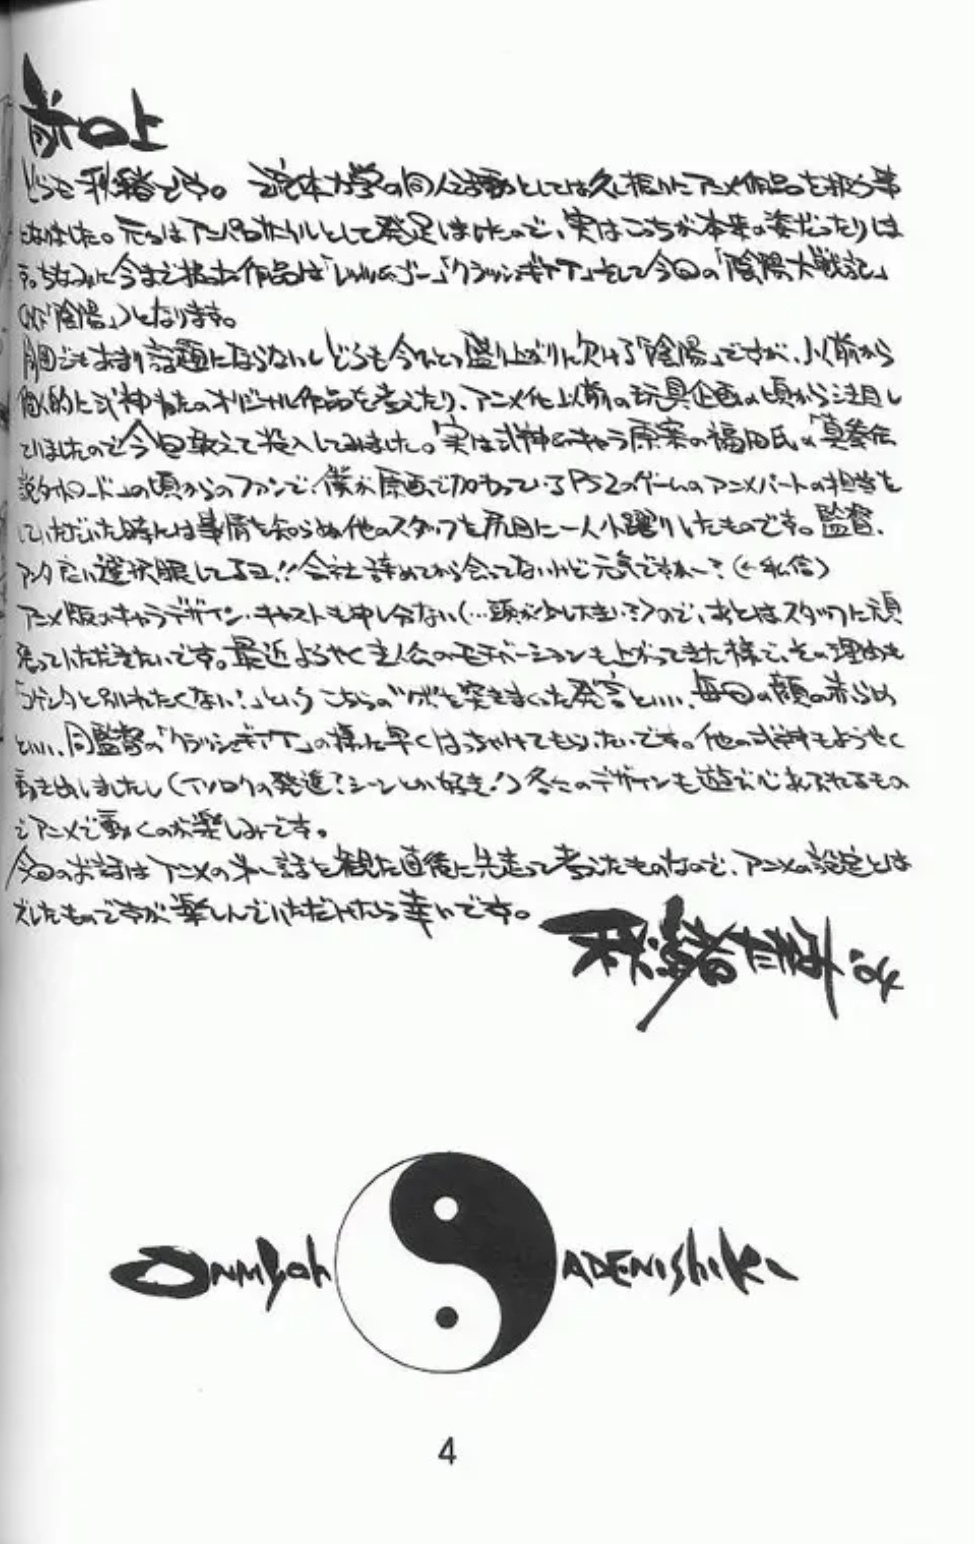 前口上
どうも秋緒です。 流体力学の同人活動としては久し振りにアニメ作品を扱う事
になりました。元々はアニパロサークルとして発足しましたので、実はこっちが本来の姿だったりしま
す。ちなみに今まで扱った作品は「レッツ&ゴー」「クラッシュギアT」そして今回の「陰陽大戦記」
(以下「陰陽」)となります。
周囲でもあまり話題にならないしどうも今ひとつ盛り上がりに欠ける「陰陽」ですが、以前から
個人的に式神ネタのオリジナル作品を考えたり、アニメ化以前の玩具企画の頃から注目し
ていましたので今回敢えて投入してみました。実は式神のキャラ原案の福田氏は「真奏伝
説タイトロード」の頃からのファンで、僕が原画で加わっているPS2のゲームのアニメパートの担当を
していただいた時には事情を知らぬ他のスタッフを尻目に一人小躍りしたものです。監督、
アンタ広い選択眼してるヨ!!会社辞めてから会ってないけど元気ですかー?(←私信)
アニメ版のキャラデザイン・キャストも申し分ない(…頭が少し大きい?)ので、あとはスタッフに頑
張っていただきたいです。最近ようやく主人公のモチベーションも上がってきた様で、その理由も
「コゲンタと別れたくない!」というこちらの“ツボ”を突きまくった発言といい、毎回の顔の赤らめ
といい、同監督の「クラッシュギアT」の様に早くはっちゃけてもらいたいです。他の式神もようやく
動き出しましたし(イソロクの発進?シーンとか好き!)各々のデザインも遊び心あふれるもの
でアニメで動くのが楽しみです。
今回のお話はアニメの第一話を観た直後に先走って考えたものなので、アニメの設定とは
ズレたものですが楽しんでいただけたら幸いです。
'04
Onmyoh ADENishiki
4